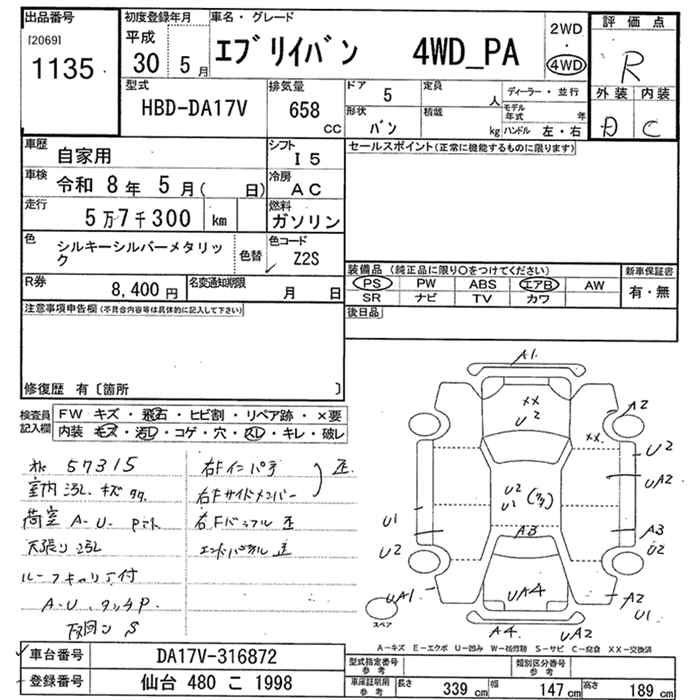 出品番号
[2069]
1135
初度登録年月
平成
30 5月
車名・グレード
エブリイバン 4WD_PA
2WD
・
4WD
評価点
R
外装 内装
D C
型式
HBD-DA17V
排気量
658
cc
ドア
5
定員
人
形状
バン
積載
kg
ディーラー・並行
モデル年式 年
ハンドル 左・右
車歴
自家用
シフト
I5
車検
令和 8年 5月( 日)
冷房
AC
走行
5万7千300 km
燃料
ガソリン
色
シルキーシルバーメタリック
色替
色コード
Z2S
R券
8,400円
名変通知期限
月 日
セールスポイント(正常に機能するものに限ります)
装備品 (純正品に限り○をつけてください)
新車保証書
PS PW ABS エアB AW
SR ナビ TV カワ
有・無
後日品
注意事項申告欄(不具合内容等は具体的に記入して下さい)
修復歴 有〔箇所 〕
検査員記入欄
FW キズ・飛石・ヒビ割・リペア跡・×要
内装 キズ・汚レ・コゲ・穴・スレ・キレ・破レ
57315
室内 キズ
荷室 A・U
天張り
ルーフキャリア付
A・U
S
右Fインパネ
右Fサイドメンバー
歪
右Fバッフル 歪
エンドパネル 歪
A1
XX
U2
XX
A2
U2
UA2
U2
U1
U1
U2
A3
A3
U2
UA1
UA4
A2
U1
A4
UA2
スペア
A-キズ E-エクボ U-凹み W-板修跡 S-サビ C-腐食 XX-交換済
車台番号
DA17V-316872
登録番号
仙台 480 こ 1998
型式指定番号
参考
類別区分番号
参考
車庫証明用
参考
長さ 339 cm
幅 147 cm
高さ 189 cm